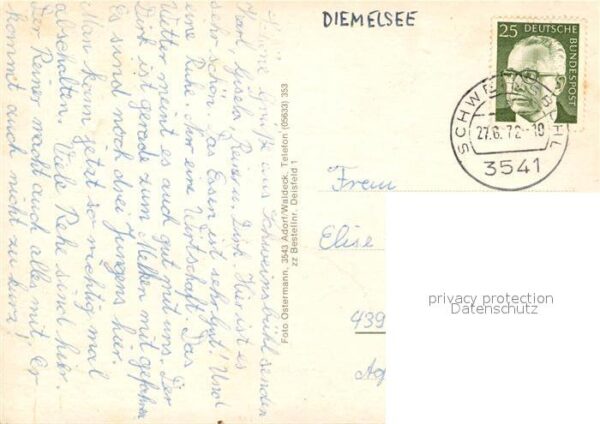 DIEMELSEE
25
DEUTSCHE
BUNDESPOST
27.6.72-10
3541
Grüße aus Schweinsbühl senden
Karl, Gisela, Reiner u. Dirk. Hier ist es
sehr schön. Das Essen ist sehr gut! Und
eine Ruhe. Nur eine Wirtschaft! Das
Wetter meint es auch gut mit uns. Der
Dirk ist gerade zum Melken mit gefahren
Es sind noch drei Jungens hier.
Man kann jetzt so richtig mal
abschalten. Viele Rehe sind hier.
Der Reiner macht auch alles mit. Er
kommt auch nicht zu kurz.
Foto Ostermann, 3543 Adorf/Waldeck, Telefon (05633) 353
zz Bestellnr. Deisfeld 1
Frau
Elise
439
privacy protection
Datenschutz